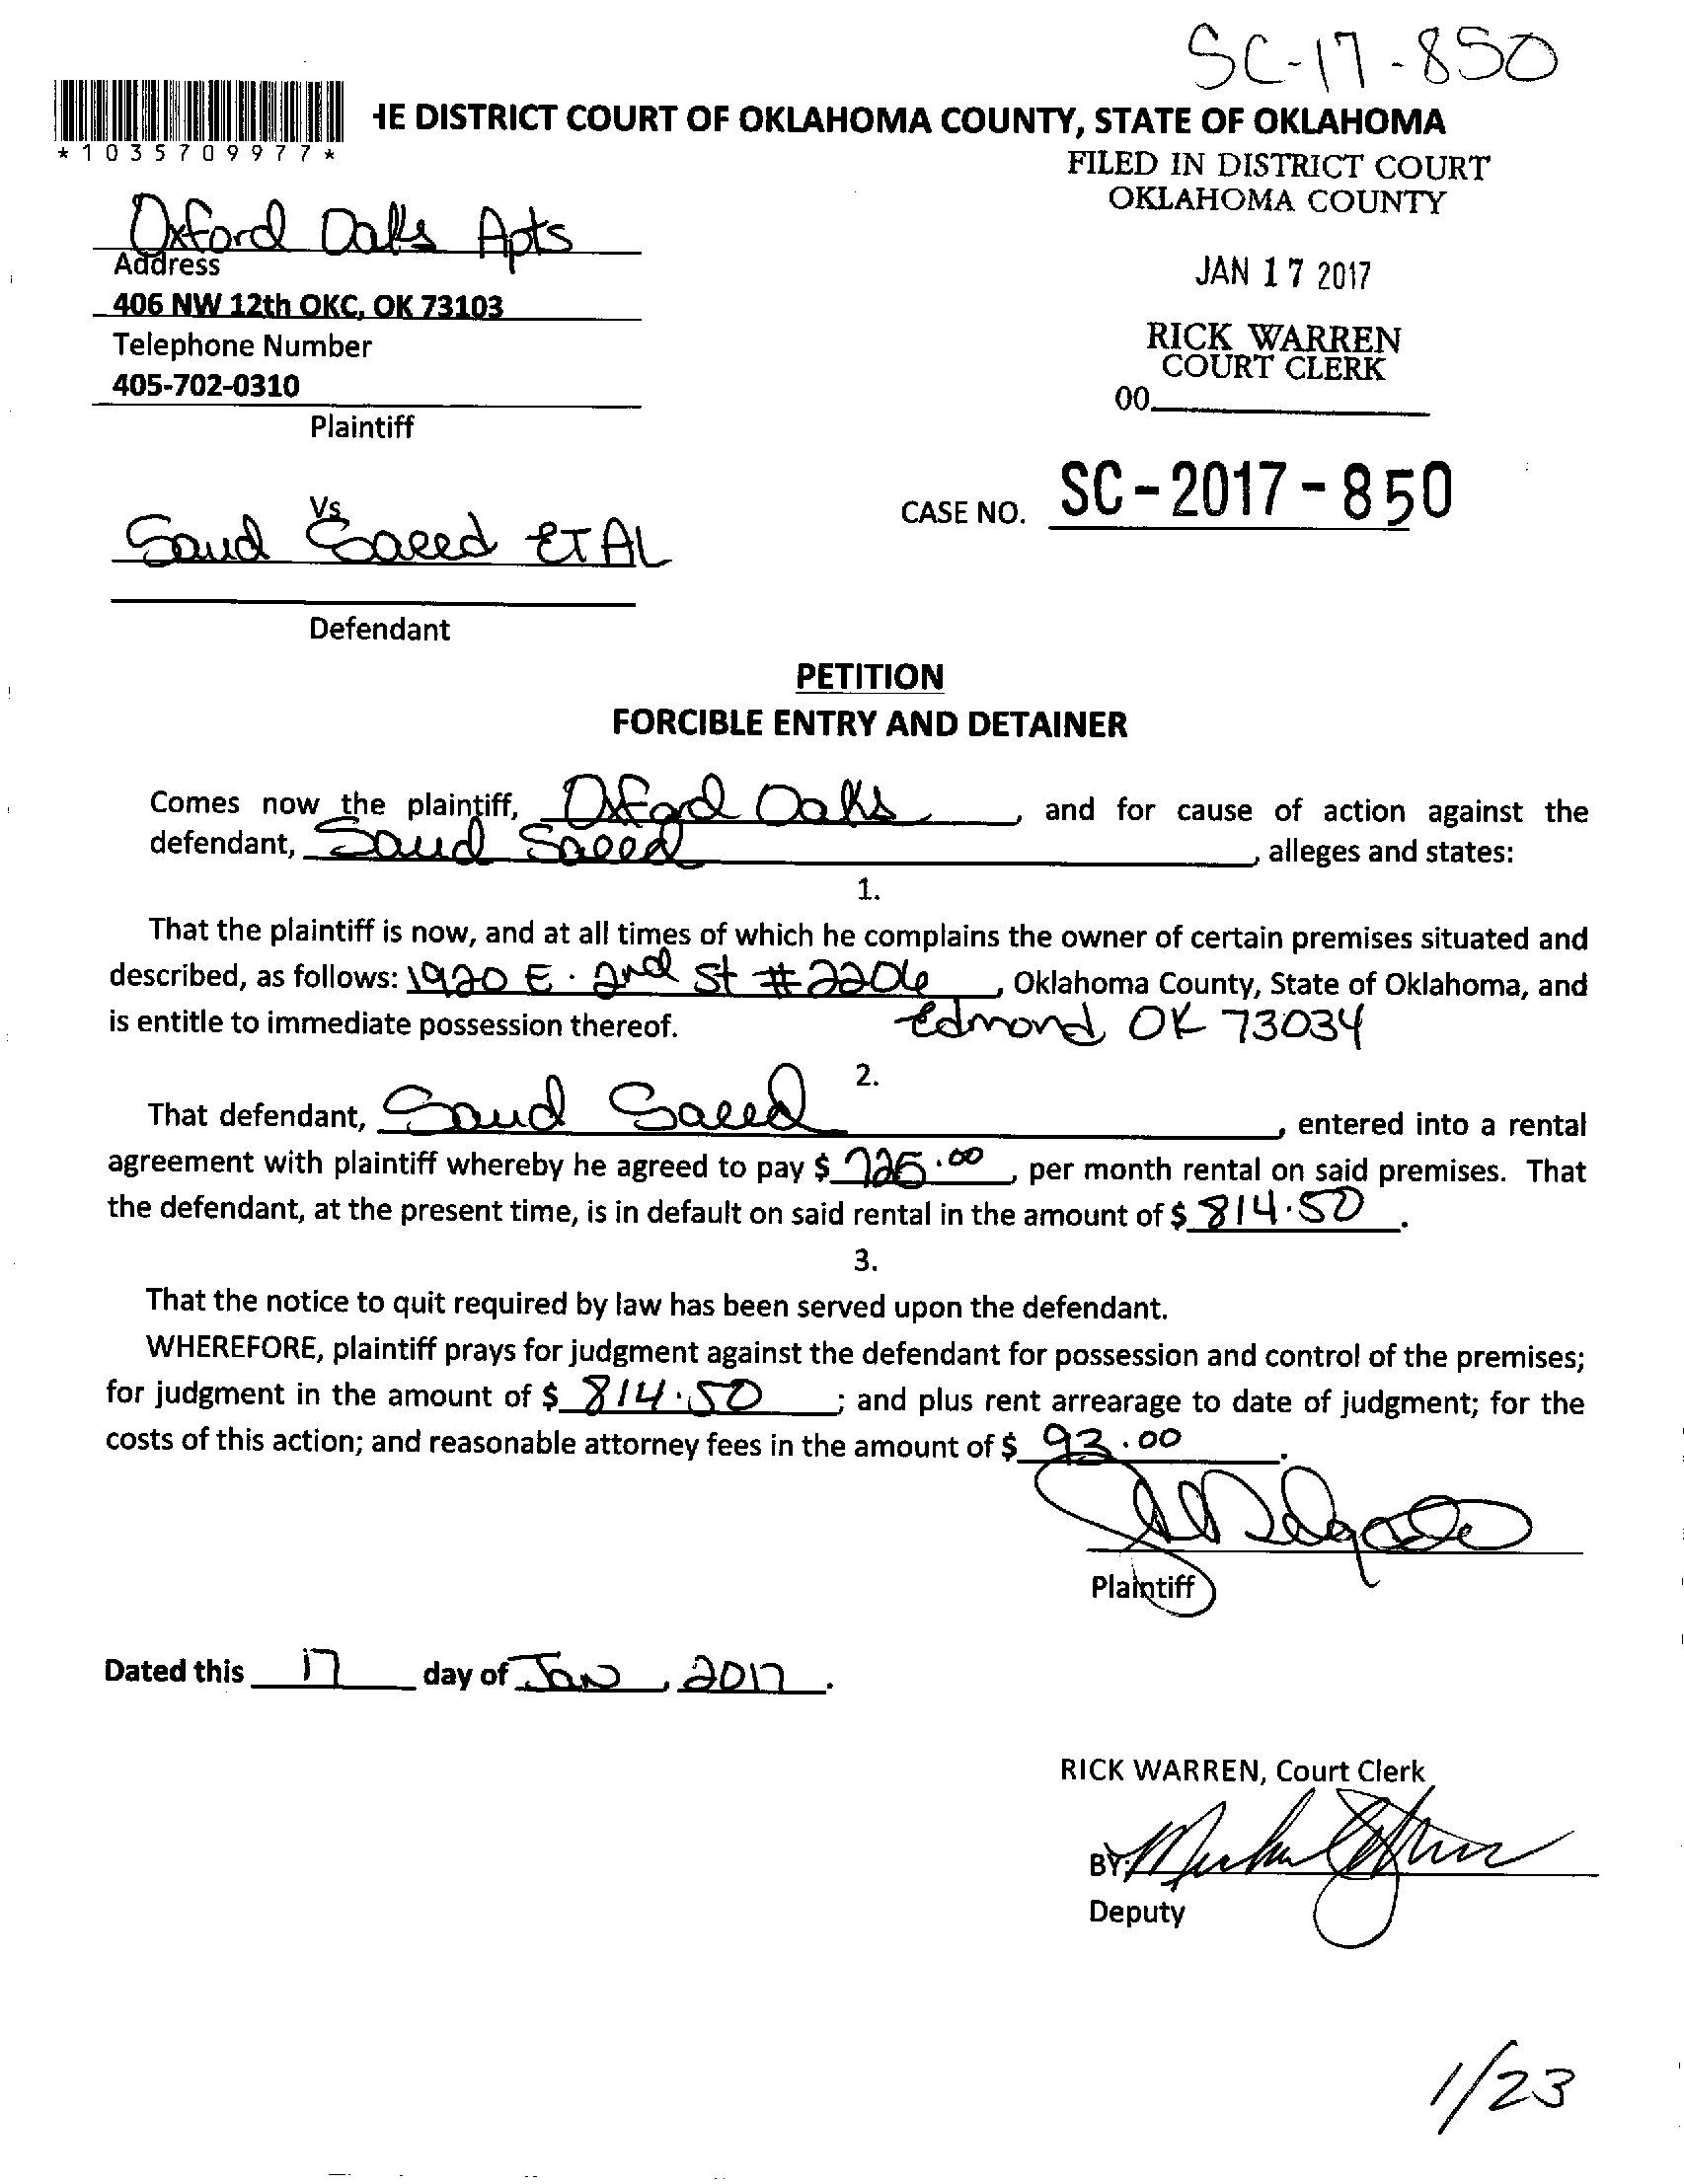 SC-17-850
HE DISTRICT COURT OF OKLAHOMA COUNTY, STATE OF OKLAHOMA
*1035709977*
FILED IN DISTRICT COURT
OKLAHOMA COUNTY
Oxford Oaks Apts
Address
JAN 17 2017
406 NW 12th OKC, OK 73103
Telephone Number
RICK WARREN
COURT CLERK
405-702-0310
00
Plaintiff
Vs
CASE NO. SC-2017-850
Saud Saeed ET AL
Defendant
PETITION
FORCIBLE ENTRY AND DETAINER
Comes now the plaintiff, Oxford Oaks, and for cause of action against the
defendant, Saud Saeed, alleges and states:
1.
That the plaintiff is now, and at all times of which he complains the owner of certain premises situated and
described, as follows: 1920 E. 2nd St #2206, Oklahoma County, State of Oklahoma, and
is entitle to immediate possession thereof. Edmond OK 73034
2.
That defendant, Saud Saeed, entered into a rental
agreement with plaintiff whereby he agreed to pay $ 725.00, per month rental on said premises. That
the defendant, at the present time, is in default on said rental in the amount of $ 814.50.
3.
That the notice to quit required by law has been served upon the defendant.
WHEREFORE, plaintiff prays for judgment against the defendant for possession and control of the premises;
for judgment in the amount of $ 814.50; and plus rent arrearage to date of judgment; for the
costs of this action; and reasonable attorney fees in the amount of $ 93.00.
Plaintiff
Dated this 17 day of Jan, 2017.
RICK WARREN, Court Clerk
BY:
Deputy
1/23